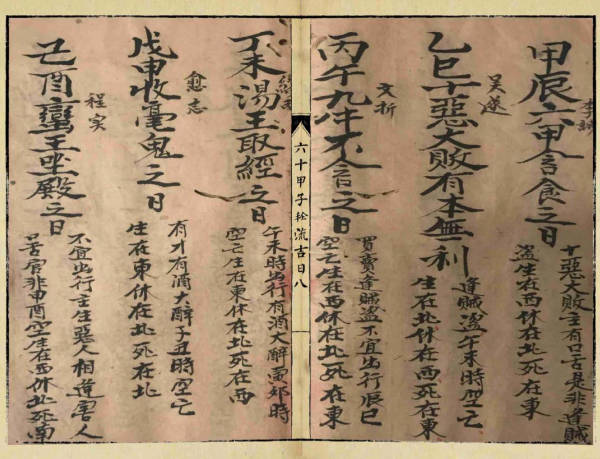 李
甲辰六甲合食之日
十惡大敗主有口舌是非逢賊
盗生在西休在北死在東
吴遂
乙巳十惡大敗有本無利
逢賊盗午未時空亡
生在北休在西死在東
文折
丙午九牛不合之日
買賣逢賊盗不宜出行辰巳
空亡生在西休在北死在東
六十甲子輪流吉日八
丁未湯王取經之日
午未時出行有酒大醉寅卯時
空亡生在東休在北死在西
愈志
戊申收鬼之日
有才有酒大醉子丑時空亡
生在東休在北死在北
程实
己酉蠻王坐殿之日
不宜出行主生惡人相逢害人
官非申酉空生在西休北死南